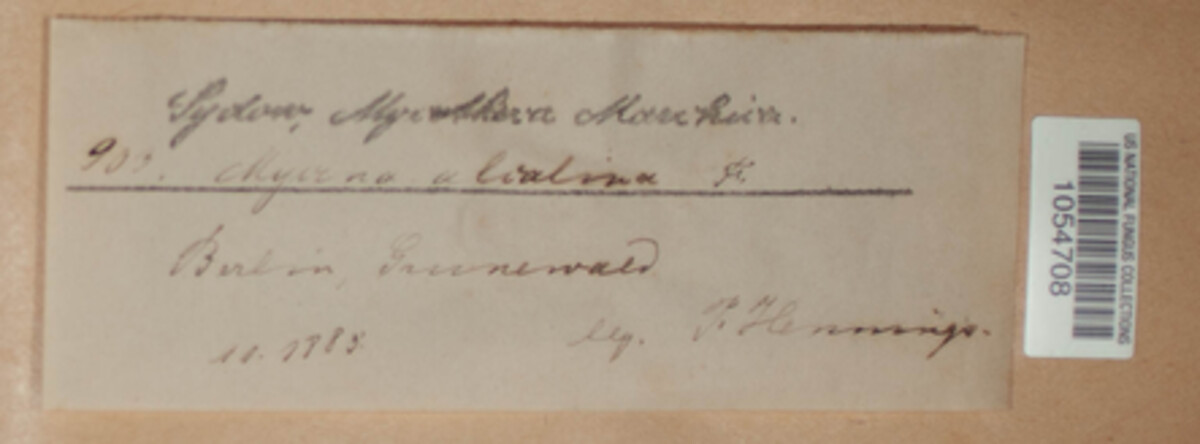 Sydow, Mycotheca Marchica.
903. Mycena alcalina Fr.
Berlin, Grunewald
11. 1885 leg. P. Hennings.
US NATIONAL FUNGUS COLLECTIONS
1054708